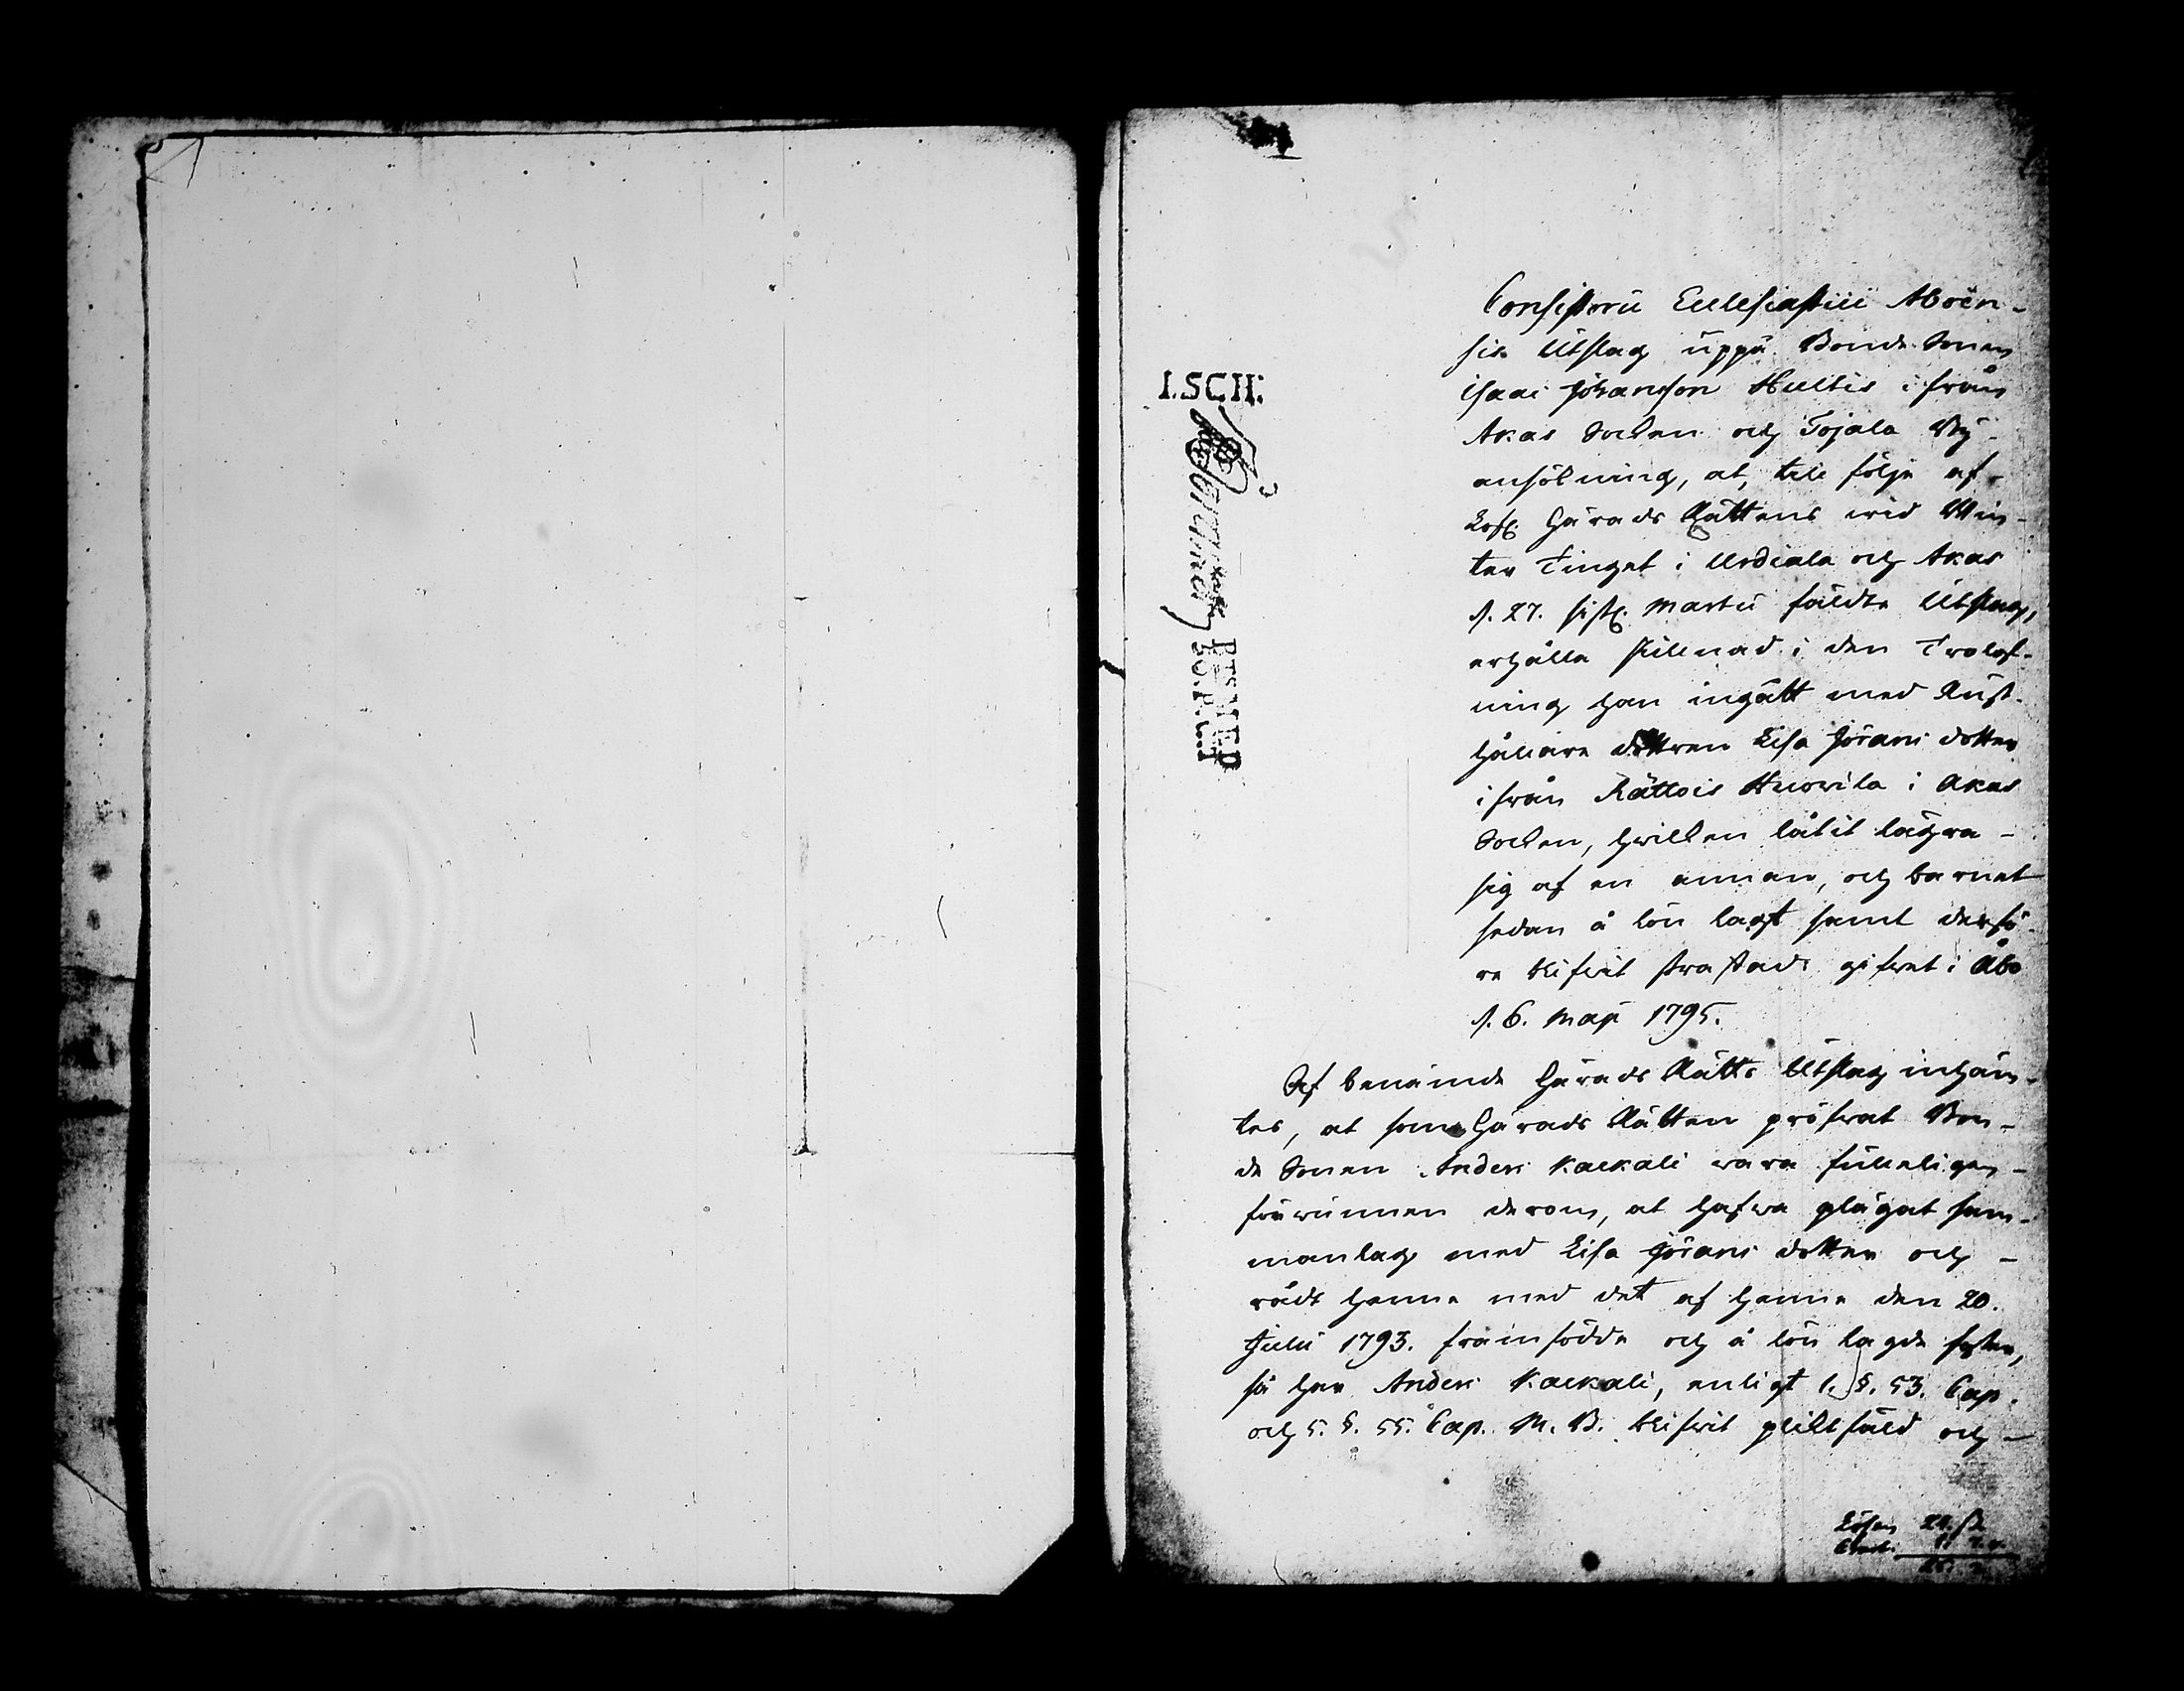 Consistorii Ecclesiastici Aboën-
sis Utslag uppå Bonde Sonen
Isaac Johansson Hultis ifrån
Akas Socken och Tojala By
ansökning, at, till följe af
Lofl. Härads Rättens wid Win-
ter Tinget i Urdiala och Akas
d. 27. sistl. Martii fäldte Utslag,
erhålla skillnad i den Trolof-
ning han ingått med Rust-
hållare dottren Lisa Jörans dotter
ifrån Rättois Huowila i Akas
Socken, hwilken låtit lägra
sig af en annan, och barnet
sedan å lön lagt samt derfö-
re blifwit straffad; gifwet i Åbo
d. 6. Maji 1795.
Af benämde Härads Rätts Utslag inhäm-
tes, at som Härads Rätten pröfwat Bon-
de Sonen Anders Kaekali wara fulleligen
förwunnen derom, at hafwa plägat sam-
manlag med Lisa Jörans dotter och
rådt henne med det af henne den 20.
Julii 1793. framfödde och å lön lagde foster,
så har Anders Kaekali, enligt 1. §. 53. Cap.
och 5. §. 55. Cap. M. B. blifwit pliktfäld och
I.SCH:
Lösen 24. sk